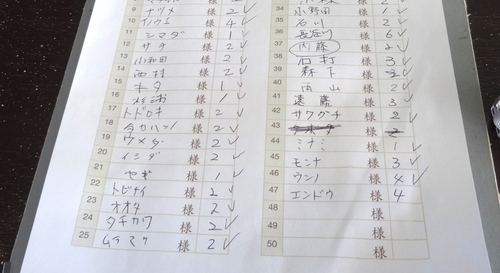 ナツメ 様 2
10 イノウエ 様 4
11 シマダ 様 1
12 サタ 様 2
13 小和田 様 2
14 西村 様 2
15 キタ 様 1
16 杉浦 様 1
17 トドロキ 様 2
18 様 2
19 ウメダ 様 2
20 イシダ 様 2
21 ヤギ 様 1
22 様 2
23 オオタ 様 2
24 タチカワ 様 2
25 ムラマツ 様 2
34
35 小野田 様 1
36 石川 様 2
長谷川 様 6
37 内藤 様 2
38 石村 様 3
39 森下 様 2
40 内山 様 2
41 遠藤 様 3
42 サワグチ 様 2
43 様 2
44 ミナミ 様 1
45 モンナ 様 3
46 ウンノ 様 4
47 エンドウ 様 4
48 様
49 様
50 様